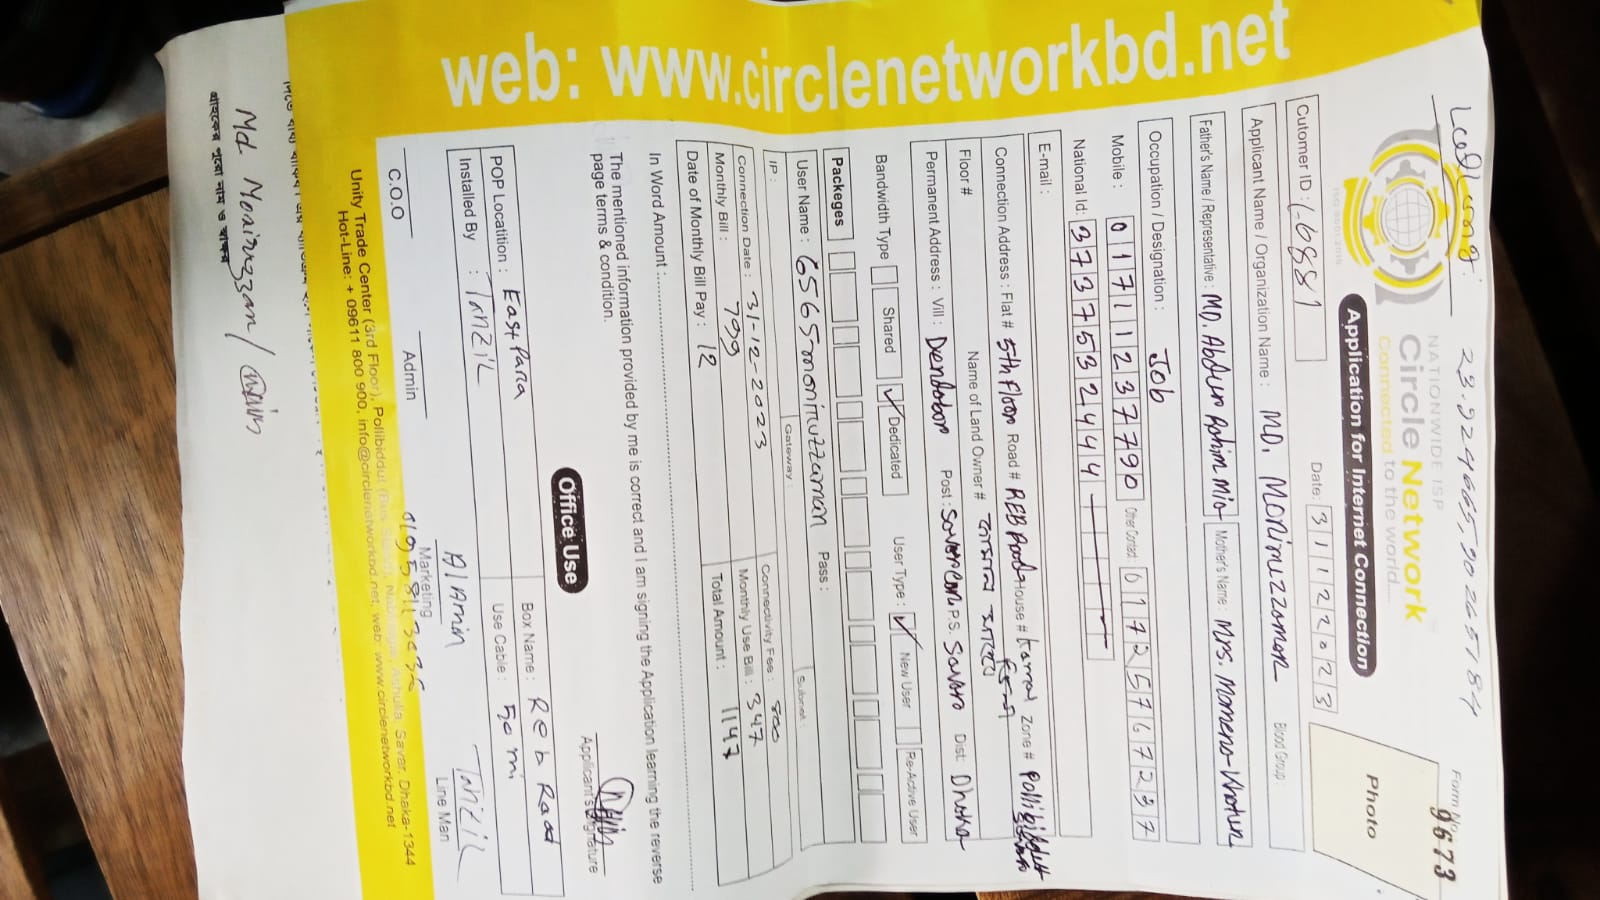 23.924665,90.265184
Form No. 9673
NATIONWIDE ISP
Circle Network
Connected to the world...
ISO 9001:2015
Application for Internet Connection
Photo
Cutomer ID : L-6881
Date: 31122023
Applicant Name / Organization Name : MD. MONIRUZZAMAN Blood Group :
Father's Name / Representative : MD. Abdur Rohim Mia Mother's Name : Mrs. Momena Khatun
Occupation / Designation : Job
Mobile : 01711237790 Other Contact : 01725767237
National Id: 3737532444
E-mail :
Connection Address : Flat # 5th Floor Road # REB Road House # Kamal Zone # Pollibiddut
Floor # Name of Land Owner #
Permanent Address : Vill : Dendabor Post : Savar Can P.S. Savar Dist: Dhaka
Bandwidth Type Shared ✓ Dedicated User Type : ✓ New User Re-Active User
Packeges
User Name : 6565moniruzzaman Pass :
IP : Gateway : Subnet :
Connection Date : 31-12-2023 Connectivity Fee : 800
Monthly Bill : 799 Monthly Use Bill : 347
Date of Monthly Bill Pay : 12 Total Amount : 1147
In Word Amount :
The mentioned information provided by me is correct and I am signing the Application learning the reverse
page terms & condition.
Applicant's Signature
Office Use
POP Locatition : East Para Box Name : Reb Road
Installed By : TANZIL Use Cable : 50 mi
Alamin Tanzil
C.O.O Admin Marketing Line Man
Unity Trade Center (3rd Floor), Pollibiddut (Bus Stand), Ashulia, Savar, Dhaka-1344
Hot-Line: + 09611 800 900, info@circlenetworkbd.net, web: www.circlenetworkbd.net
web: www.circlenetworkbd.net
Md. Moniruzzan/
গ্রাহকের পুরো নাম ও স্বাক্ষর